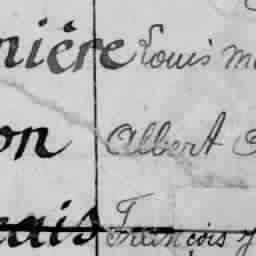 nière Louis
on Albert
ais François